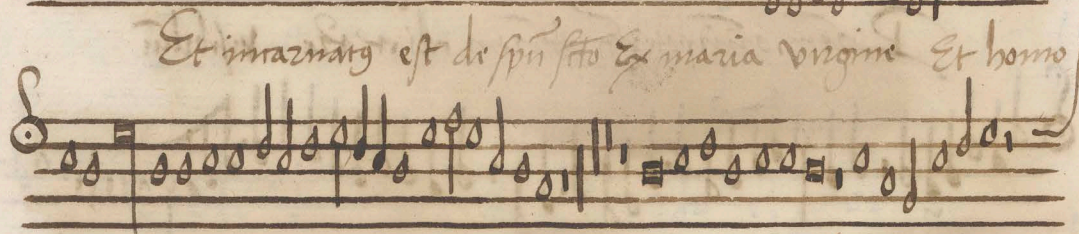 Et incarnatꝰ est de spũ scto Ex maria virgine Et homo